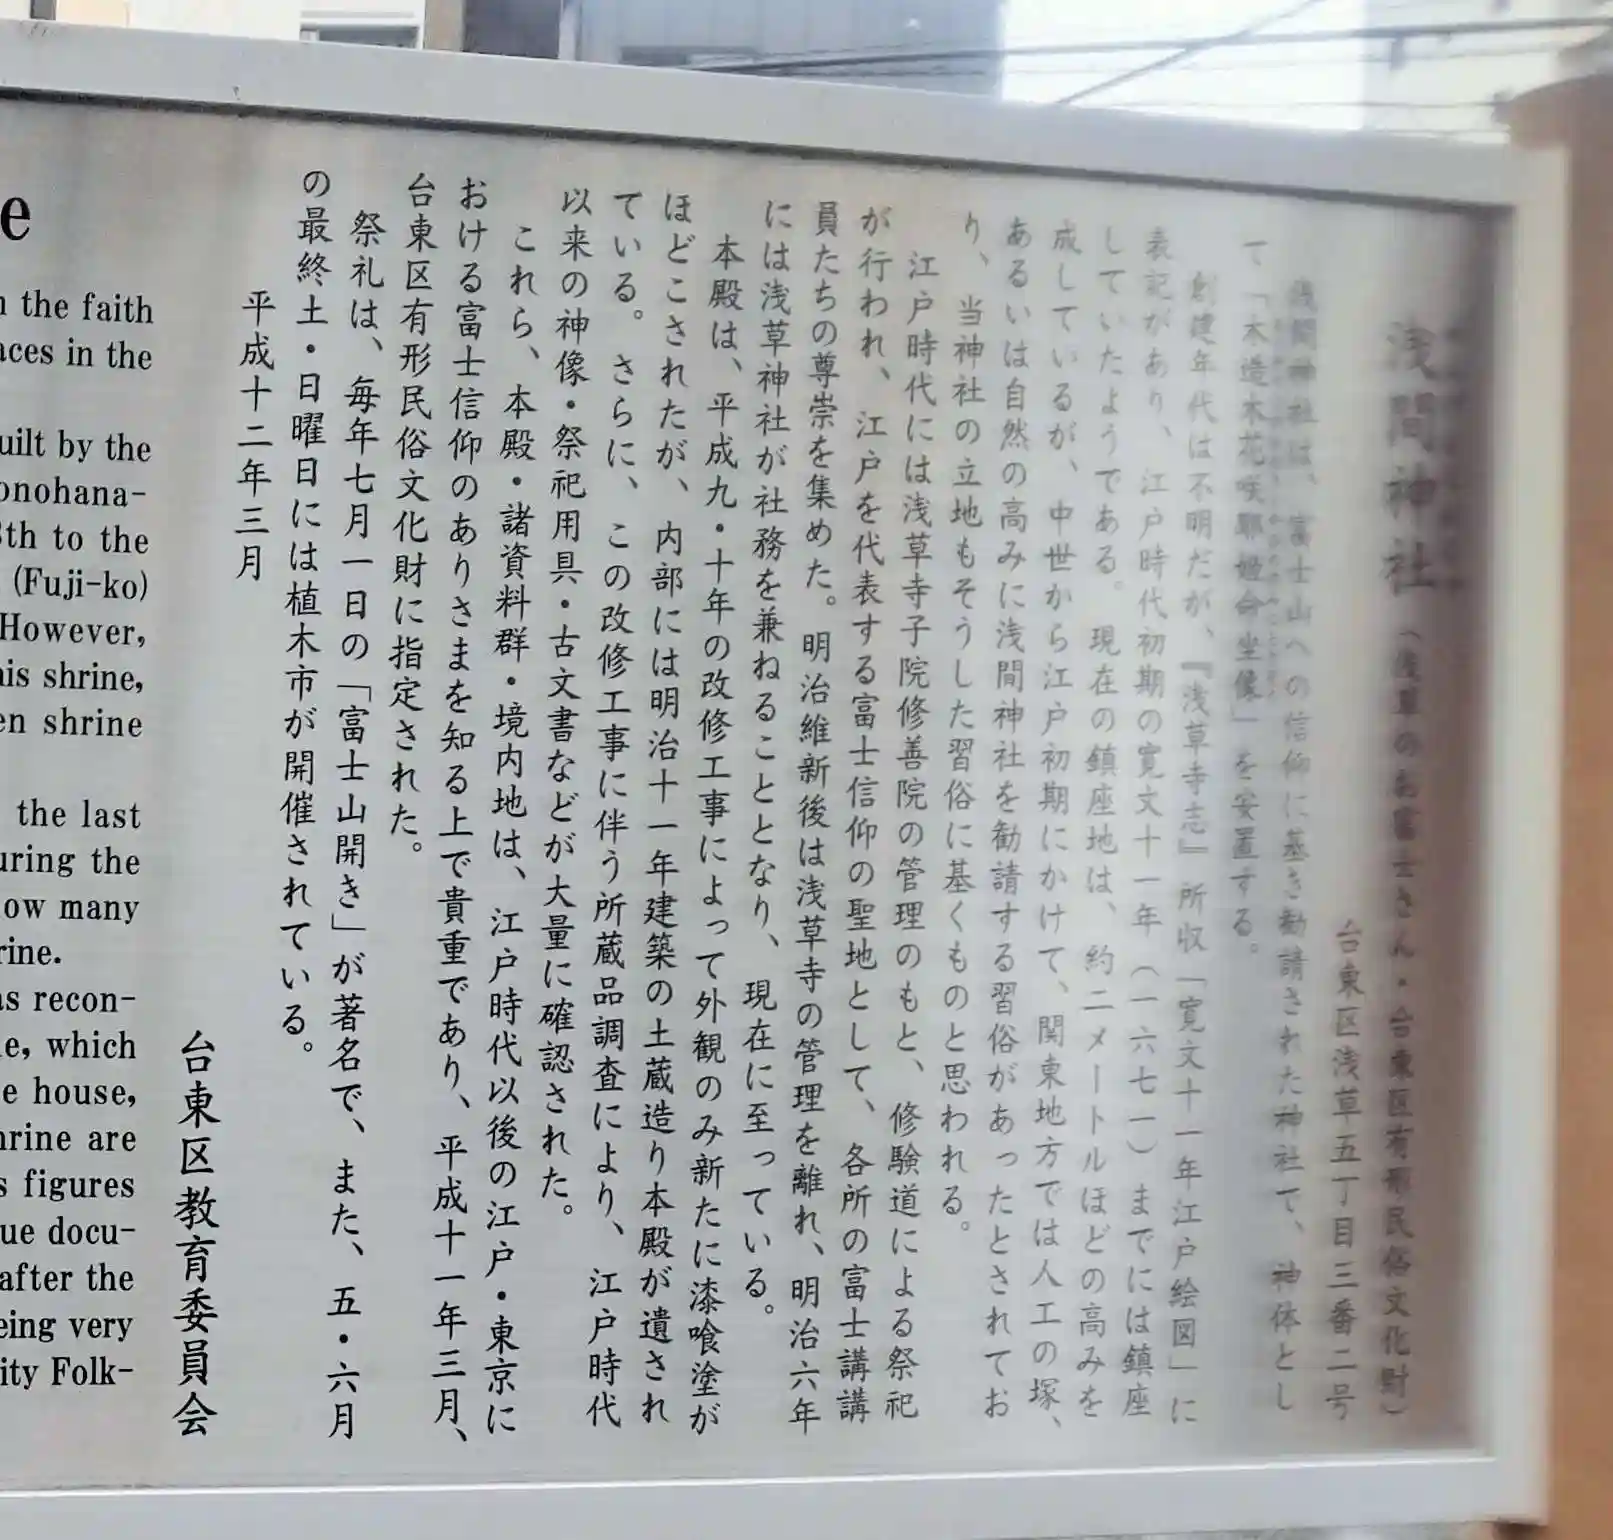 浅間神社（浅草のお富士さん・台東区有形民俗文化財）
台東区浅草五丁目三番二号
浅間神社は、富士山への信仰に基き勧請された神社で、神体とし
て「木造木花咲耶姫命坐像」を安置する。
創建年代は不明だが、『浅草寺志』所収「寛文十一年江戸絵図」に
表記があり、江戸時代初期の寛文十一年（一六七一）までには鎮座
していたようである。現在の鎮座地は、約二メートルほどの高みを
成しているが、中世から江戸初期にかけて、関東地方では人工の塚、
あるいは自然の高みに浅間神社を勧請する習俗があったとされてお
り、当神社の立地もそうした習俗に基くものと思われる。
江戸時代には浅草寺子院修善院の管理のもと、修験道による祭祀
が行われ、江戸を代表する富士信仰の聖地として、各所の富士講講
員たちの尊崇を集めた。明治維新後は浅草寺の管理を離れ、明治六年
には浅草神社が社務を兼ねることとなり、現在に至っている。
本殿は、平成九・十年の改修工事によって外観のみ新たに漆喰塗が
ほどこされたが、内部には明治十一年建築の土蔵造り本殿が遺され
ている。さらに、この改修工事に伴う所蔵品調査により、江戸時代
以来の神像・祭祀用具・古文書などが大量に確認された。
これら、本殿・諸資料群・境内地は、江戸時代以後の江戸・東京に
おける富士信仰のありさまを知る上で貴重であり、平成十一年三月、
台東区有形民俗文化財に指定された。
祭礼は、毎年七月一日の「富士山開き」が著名で、また、五・六月
の最終土・日曜日には植木市が開催されている。
平成十二年三月
台東区教育委員会
e
n the faith
aces in the
uilt by the
onohana-
8th to the
(Fuji-ko)
However,
his shrine,
en shrine
the last
uring the
ow many
rine.
as recon-
e, which
e house,
hrine are
s figures
ue docu-
after the
eing very
ity Folk-